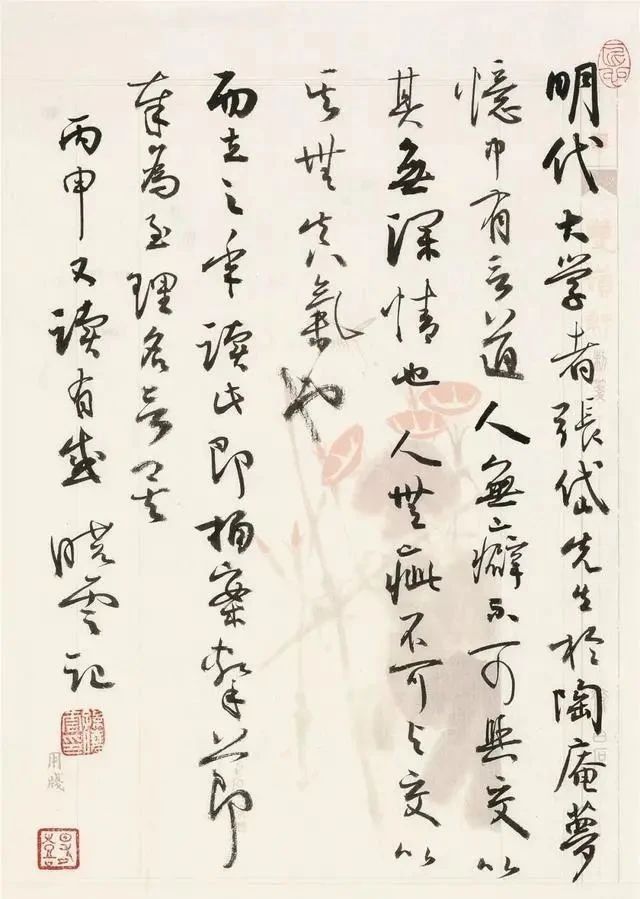 明代大学者張岱先生於陶庵夢
憶中有言道人無癖不可與交以
其無深情也人無疵不可与交以
其無真氣也
而立之年讀此即拍案擊節
奉為至理名言矣
丙申又讀有感 晓雲記
用牋